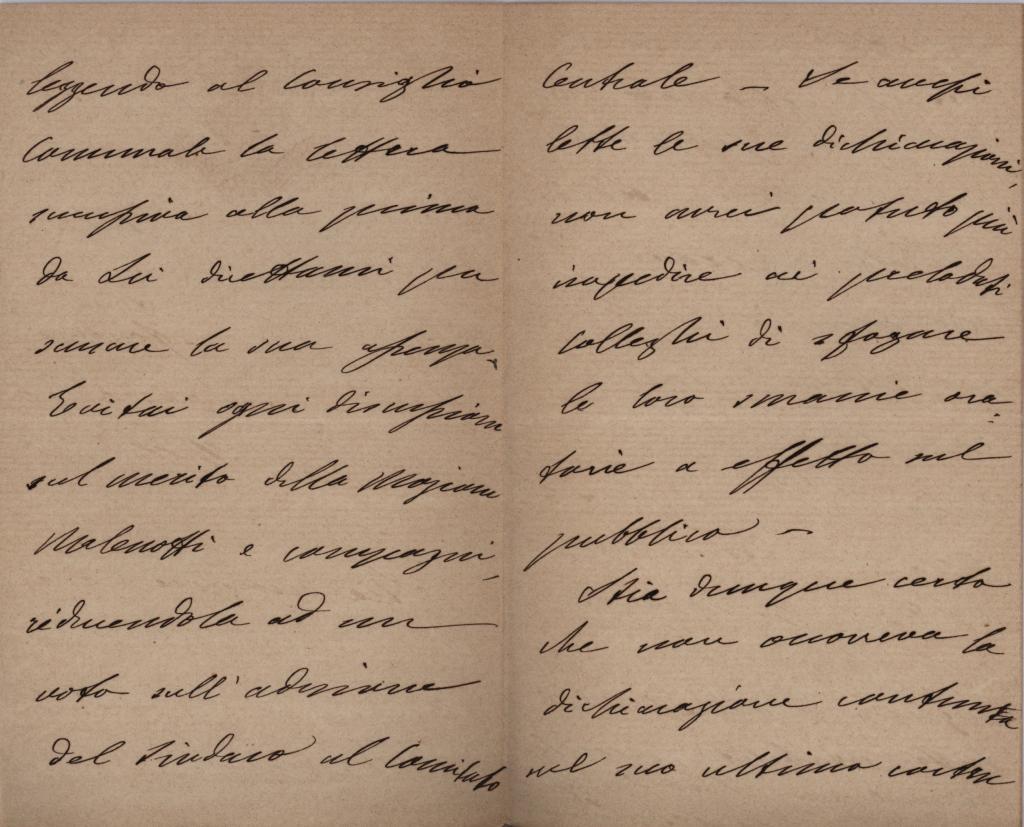 leggendo al Consiglio
Comunale la lettera
successiva alla prima
da Lei direttami per
scusare la sua assenza.
Evitai ogni discussione
sul merito della Mozione
Malenotti e compagni,
riducendola ad un
voto sull'adesione
del Sindaco al Comitato
Centrale – Se avessi
lette le sue dichiarazioni,
non avrei potuto più
impedire ai prelodati
colleghi di sfogare
le loro smanie ora-
torie a effetto sul
pubblico –
Stia dunque certo
che non occorreva la
dichiarazione contenuta
nel suo ultimo